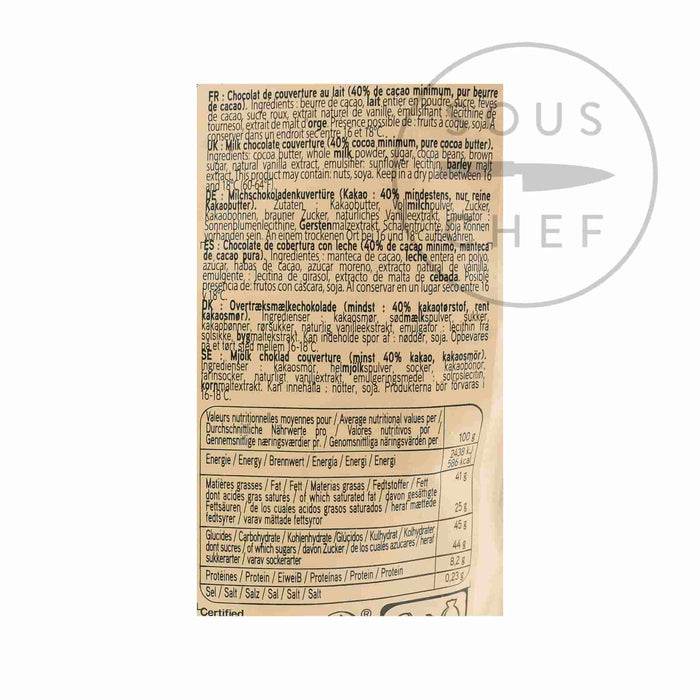 FR : Chocolat de couverture au lait (40% de cacao minimum, pur beurre
de cacao). Ingrédients : beurre de cacao, lait entier en poudre, sucre, fèves
de cacao, sucre roux, extrait naturel de vanille, émulsifiant : lécithine de
tournesol, extrait de malt d'orge. Présence possible de : fruits à coque, soja. À
conserver dans un endroit sec entre 16 et 18°C.
: Milk chocolate couverture (40% cocoa minimum, pure cocoa butter).
Ingredients: cocoa butter, whole milk powder, sugar, cocoa beans, brown
sugar, natural vanilla extract, emulsifier: sunflower lecithin, barley malt
extract. This product may contain: nuts, soya. Keep in a dry place between 16
and 18°C (60-64°F).
DE : Milchschokoladenkuvertüre (Kakao : 40% mindestens, nur reine
Kakaobutter). Zutaten : Kakaobutter, Vollmilchpulver, Zucker,
Kakaobohnen, brauner Zucker, natürliches Vanilleextrakt, Emulgator :
Sonnenblumenlecithine, Gerstenmalzextrakt. Schalenfrüchte, Soja können
vorhanden sein. An einem trockenen Ort bei 16 und 18°C aufbewahren.
ES : Chocolate de cobertura con leche (40% de cacao mínimo, manteca
de cacao pura). Ingredientes : manteca de cacao, leche entera en polvo,
azúcar, habas de cacao, azúcar moreno, extracto natural de vainilla,
emulgente : lecitina de girasol, extracto de malta de cebada. Posible
presencia de: frutos con cáscara, soja. Al conservar en un lugar seco entre 16
y 18°C.
DK : Overtræksmælkechokolade (mindst : 40% kakaotørstof, rent
kakaosmør). Ingredienser : kakaosmør, sødmælkspulver, sukker,
kakaobønner, rørsukker, naturlig vanilleekstrakt, emulgator : lecithin fra
solsikke, bygmaltekstrakt. Kan indeholde spor af : nødder, soja. Opbevares
på et tørt sted mellem 16-18°C.
SE : Mjölk choklad couverture (minst 40% kakao, kakaosmör).
Ingredienser : kakaosmör, helmjölkspulver, socker, kakaobönor,
farinsocker, naturligt vaniljextrakt, emulgeringsmedel : solroslecitin,
kornmaltextrakt. Kan innehålla : nötter, soja. Produkterna bör förvaras i
16-18°C.
Valeurs nutritionnelles moyennes pour / Average nutritional values per /
Durchschnittliche Nährwerte pro / Valores nutritivos por /
Gennemsnitlige næringsværdier pr. / Genomsnittliga näringsvärden per 100 g
Energie / Energy / Brennwert / Energía / Energi / Energi 2438 kJ
586 kcal
Matières grasses / Fat / Fett / Materias grasas / Fedtstoffer / Fett 41 g
dont acides gras saturés / of which saturated fat / davon gesättigte
Fettsäuren / de los cuales ácidos grasos saturados / heraf mættede 25 g
fedtsyrer / varav mättade fettsyror
Glucides / Carbohydrate / Kohlenhydrate / Glúcidos / Kulhydrat / Kolhydrater 45 g
dont sucres / of which sugars / davon Zucker / de los cuales azucares / heraf
sukkerarter / varav sockerarter 44 g
Protéines / Protein / Eiweiß / Proteínas / Protein / Protein 8,2 g
Sel / Salt / Salz / Sal / Salt / Salt 0,23 g
Certified
®
SOUS
CHEF